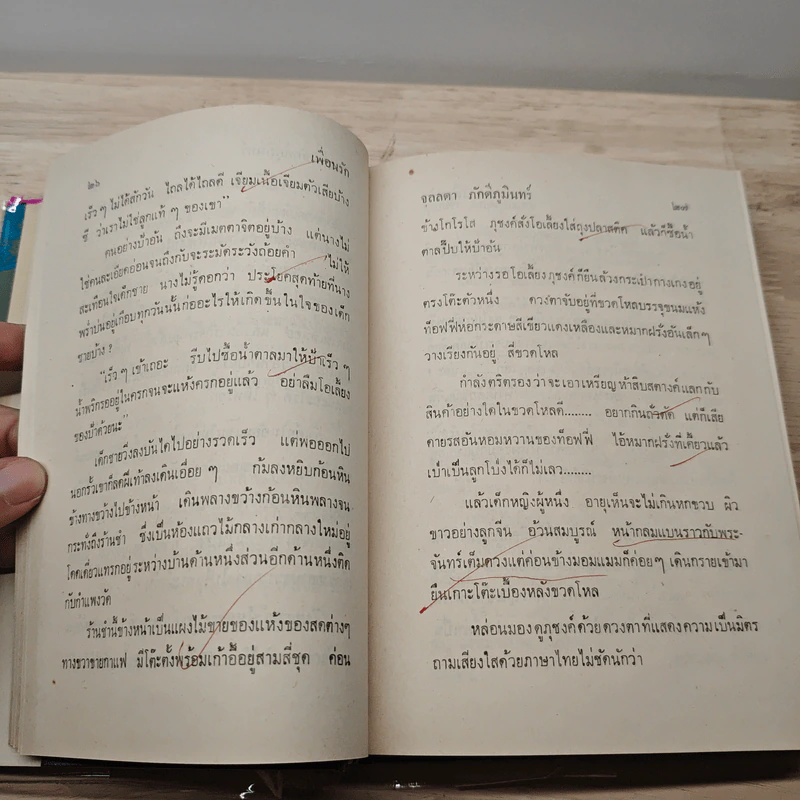 ๒๖
เพื่อนรัก
เร็ว ๆ ไม่ได้สักวัน ไถลได้ไถลดี เจียมเนื้อเจียมตัวเสียบ้าง
ซี ว่าเราไม่ใช่ลูกแท้ ๆ ของเขา"
คนอย่างป้าอัน ถึงจะมีเมตตาจิตอยู่บ้าง แต่นางไม่
ใช่คนละเอียดอ่อนจนถึงกับจะระมัดระวังถ้อยคำ ไม่ให้
สะเทือนใจเด็กชาย นางไม่รู้ดอกว่า ประโยคสุดท้ายที่นาง
พร่ำบ่นอยู่เกือบทุกวันนั้นก่ออะไรให้เกิดขึ้นในใจของเด็ก
ชายบ้าง ?
"เร็ว ๆ เข้าเถอะ รีบไปซื้อน้ำตาลมาให้ป้าเร็ว ๆ
น้ำพริกรออยู่ในครกจนจะแห้งครกอยู่แล้ว อย่าลืมโอเลี้ยง
ของป้าด้วยนะ"
เด็กชายวิ่งลงบันไดไปอย่างรวดเร็ว แต่พอออกไป
นอกรั้วเขาก็ลดฝีเท้าลงเดินเอื่อย ๆ ก้มลงหยิบก้อนหิน
ข้างทางขว้างไปข้างหน้า เดินพลางขว้างก้อนหินพลางจน
กระทั่งถึงร้านชำ ซึ่งเป็นห้องแถวไม้กลางเก่ากลางใหม่อยู่
โดดเดี่ยวแทรกอยู่ระหว่างบ้านด้านหนึ่งส่วนอีกด้านหนึ่งติด
กับกำแพงวัด
ร้านชำนี้ข้างหน้าเป็นแผงไม้ขายของแห้งของสดต่างๆ
ทางขวาขายกาแฟ มีโต๊ะตั้งพร้อมเก้าอี้อยู่สามสี่ชุด ค่อน
จุลลดา ภักดีภูมินทร์
๒๗
ข้างโกโรโส ภุชงค์สั่งโอเลี้ยงใส่ถุงปลาสติค แล้วก็ซื้อน้ำ
ตาลปี๊บให้ป้าอัน
ระหว่างรอโอเลี้ยงภุชงค์ก็ยืนล้วงกระเป๋ากางเกงอยู่
ตรงโต๊ะตัวหนึ่ง ดวงตาจับอยู่ที่ขวดโหลบรรจุขนมแห้ง
ท๊อฟฟี่ห่อกระดาษสีเขียวแดงเหลืองและหมากฝรั่งอันเล็กๆ
วางเรียงกันอยู่ สี่ขวดโหล
กำลังตริตรองว่าจะเอาเหรียญห้าสิบสตางค์แลกกับ
สินค้าอย่างใดในขวดโหลดี........ อยากกินถั่วตัด แต่ก็เสีย
ดายรสอันหอมหวานของท๊อฟฟี่ ไอ้หมากฝรั่งที่เคี้ยวแล้ว
เป่าเป็นลูกโป่งได้ก็ไม่เลว........
แล้วเด็กหญิงผู้หนึ่ง อายุเห็นจะไม่เกินหกขวบ ผิว
ขาวอย่างลูกจีน อ้วนสมบูรณ์ หน้ากลมแบนราวกับพระ-
จันทร์เต็มดวงแต่ค่อนข้างมอมแมมก็ค่อยๆ เดินกรายเข้ามา
ยืนเกาะโต๊ะเบื้องหลังขวดโหล
หล่อนมองดูภุชงค์ด้วยดวงตาที่แสดงความเป็นมิตร
ถามเสียงใสด้วยภาษาไทยไม่ชัดนักว่า